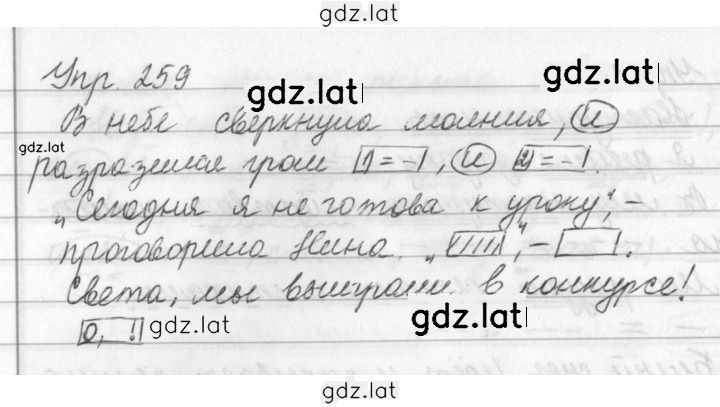 gdz.lat
Упр. 259
gdz.lat
gdz.lat
В небе сверкнула молния, и
gdz.lat
разразился гром [1 = –], и [2 = –].
"Сегодня я не готова к уроку", –
проговорила Нина. "[////]", – [ ].
Света, мы выиграли в конкурсе!
[О, !] gdz.lat
gdz.lat
gdz.lat